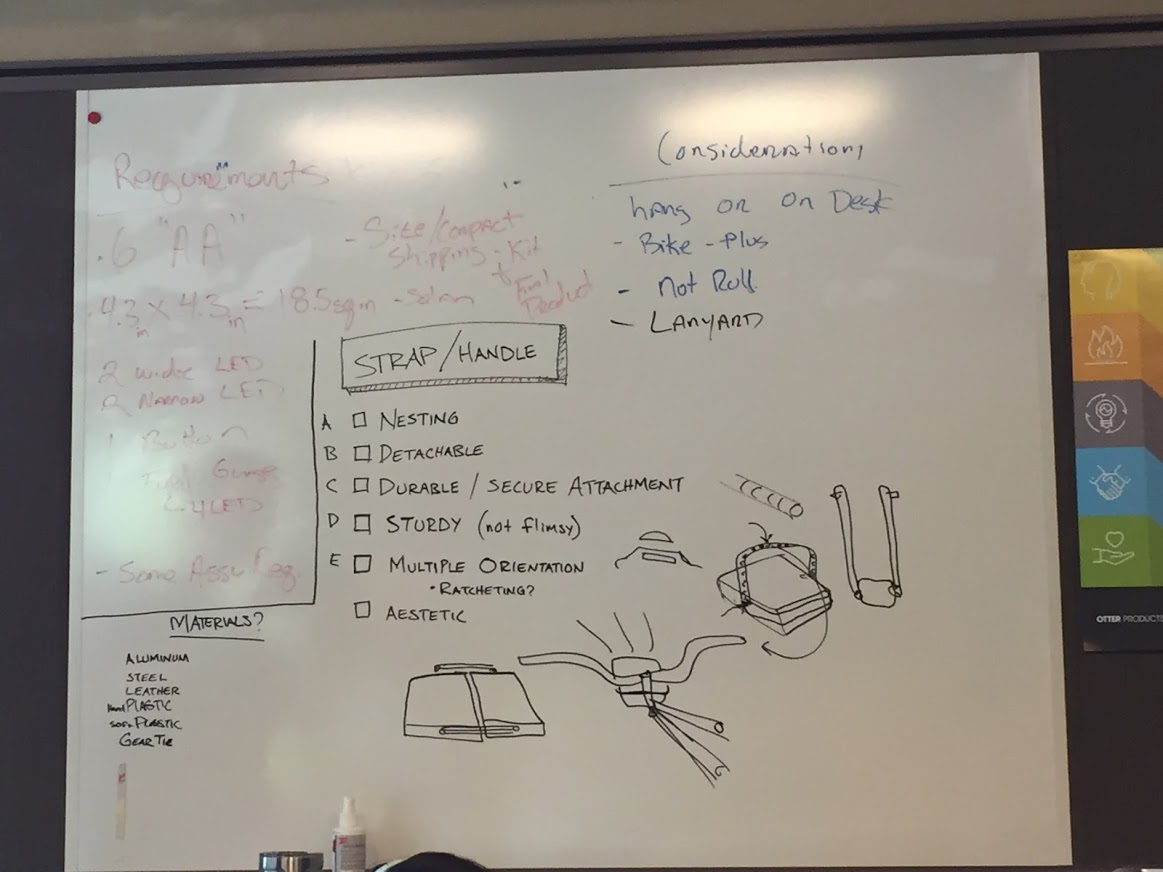 Requirements
.6 "AA"
- Size/Compact
Shipping - Kit
+ Final
Product
.4.3 in x 4.3 in = 18.5 sq in - Solar
2 wide LED
2 Narrow LED
1 Button
Fuel Gauge
4 LEDs
- Some Assy Req.
Considerations
hang or on Desk
- Bike - Plus
- Not Roll
- LANYARD
STRAP/HANDLE
A □ NESTING
B □ DETACHABLE
C □ DURABLE / SECURE ATTACHMENT
D □ STURDY (not flimsy)
E □ MULTIPLE ORIENTATION
• RATCHETING?
□ AESTETIC
MATERIALS?
ALUMINUM
STEEL
LEATHER
Hard PLASTIC
SOFT PLASTIC
GEAR TIE
OTTER PRODUCTS